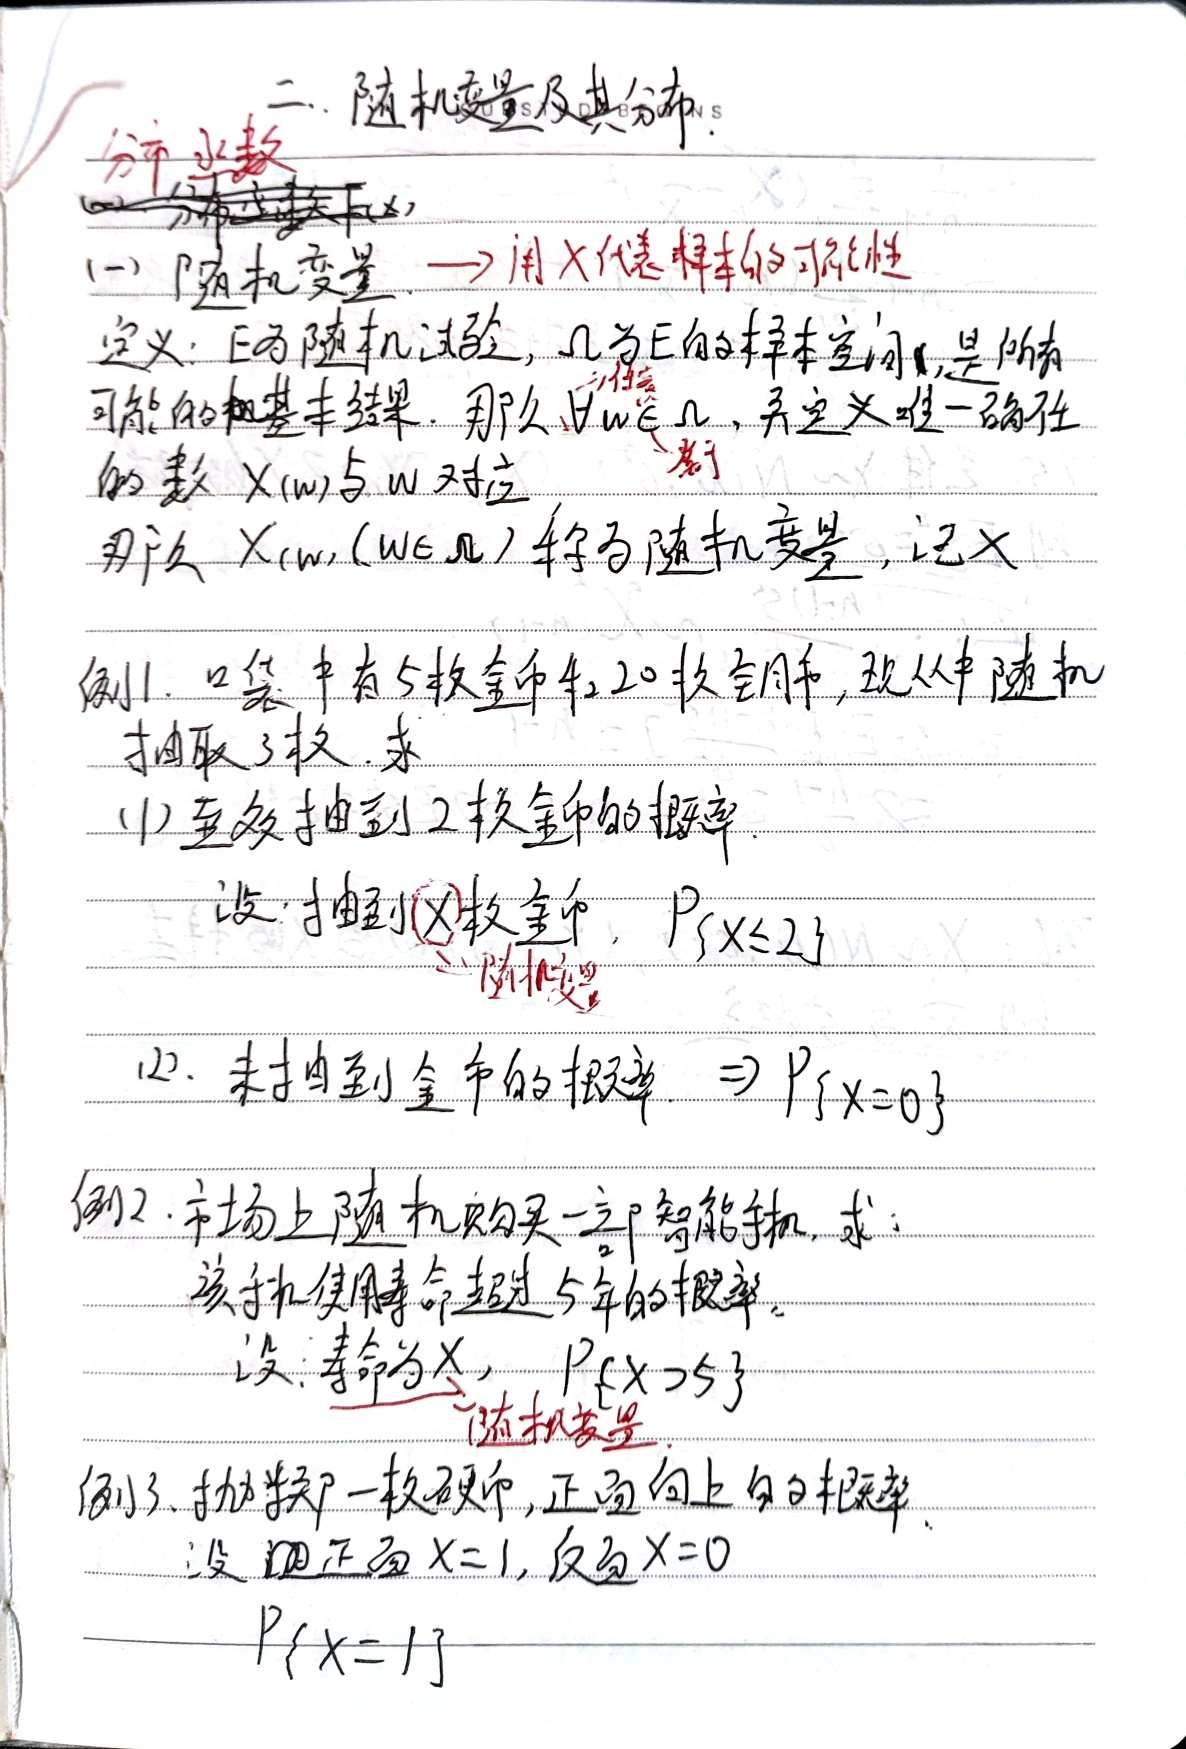 二. 随机变量及其分布.
分布函数
(一) 随机变量. → 用X代表样本的可能性
定义: E为随机试验, Ω为E的样本空间, 是所有
可能的基本结果. 那么 ∀w∈Ω, 并定义唯一确任
任意
属于
的数 X(w)与w对应
那么 X(w) (w∈Ω) 称为随机变量, 记X
例1. 口袋中有5枚金币和20枚银币, 现从中随机
抽取3枚. 求
(1) 至多抽到2枚金币的概率.
设: 抽到X枚金币. P{X≤2}
随机变量
(2). 未抽到金币的概率. ⇒ P{X=0}
例2. 市场上随机购买一部智能手机, 求:
该手机使用寿命超过5年的概率.
设: 寿命为X, P{X>5}
随机变量.
例3. 抛掷一枚硬币, 正面向上的概率.
设 正面X=1, 反面X=0
P{X=1}